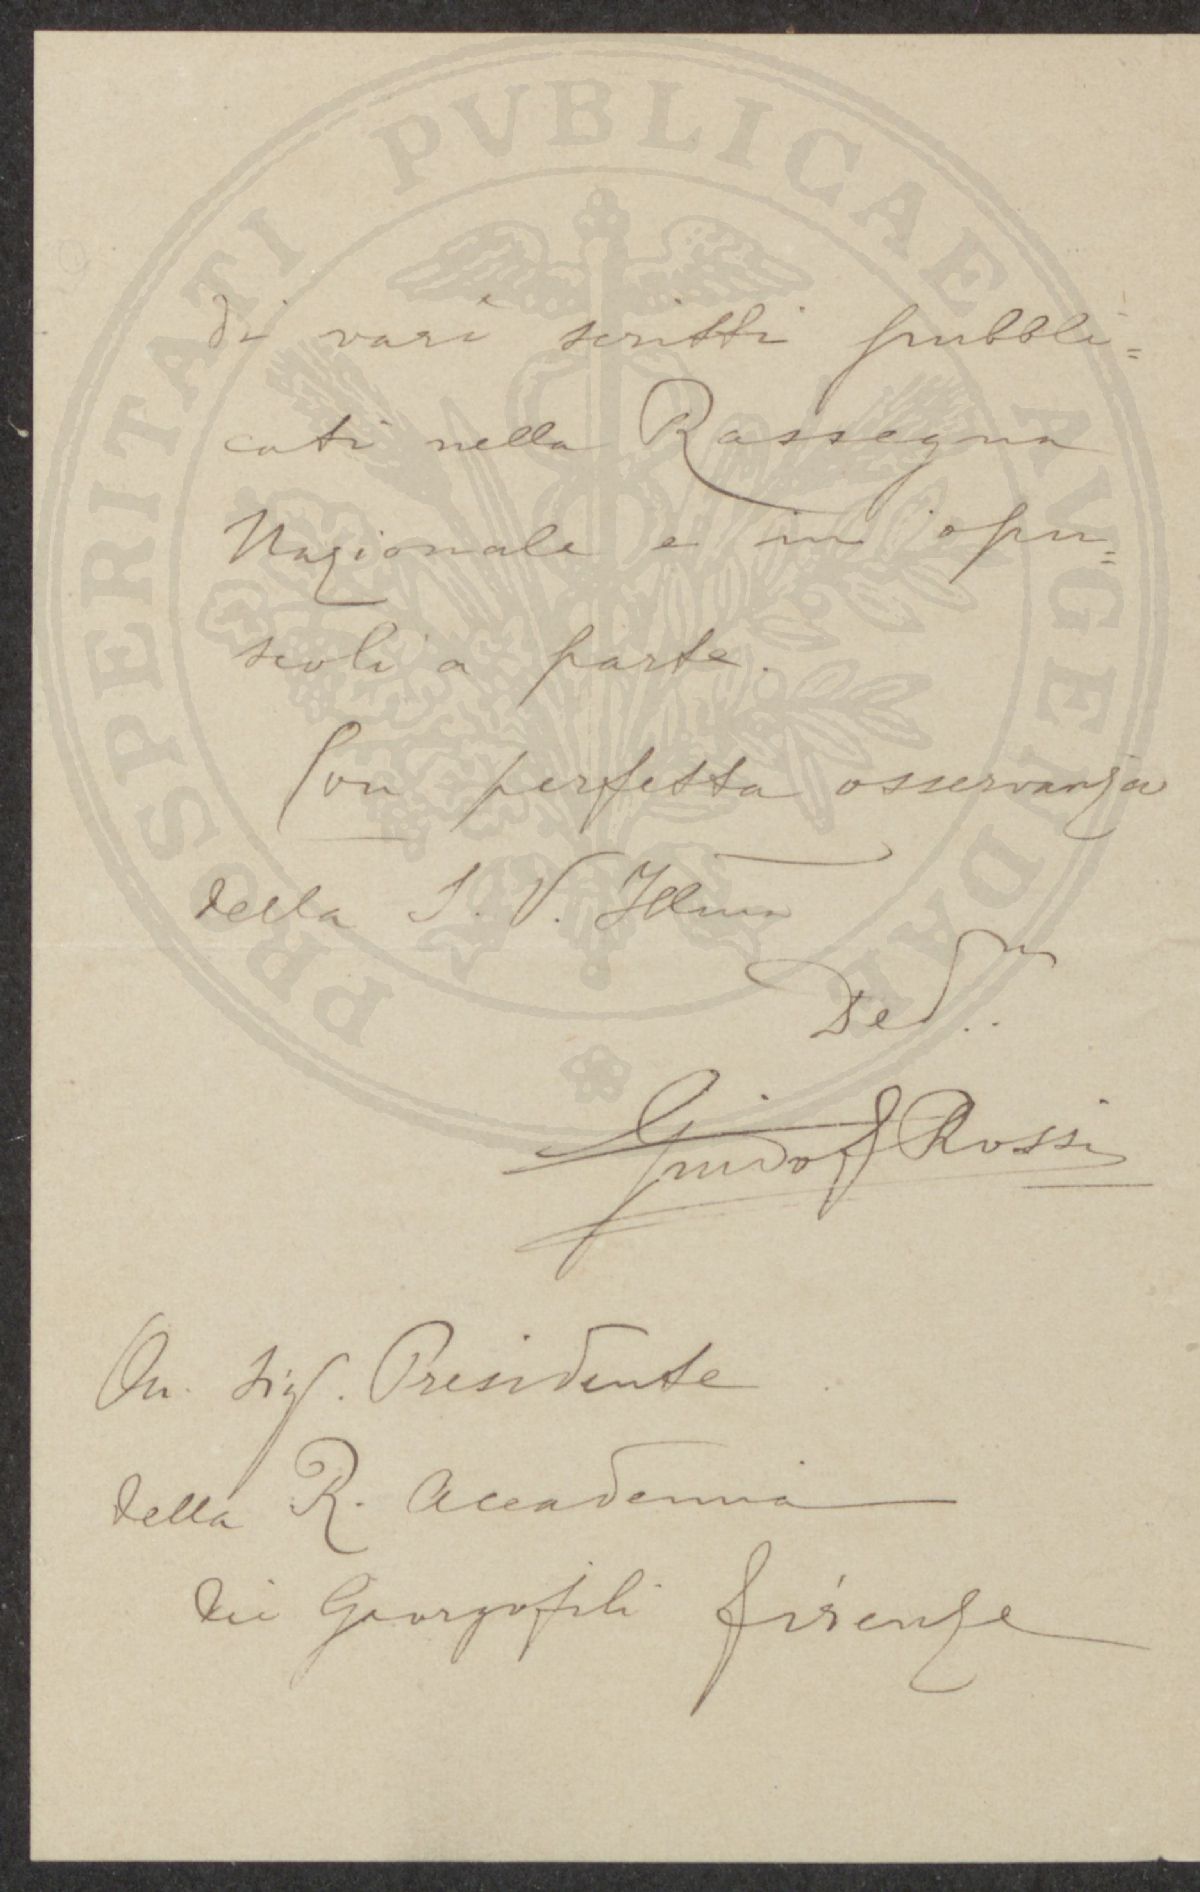 PROSPERITATI PVBLICAE AVGENDAE
di vari scritti pubbli=
cati nella Rassegna
Nazionale e in opu=
scoli a parte.
Con perfetta osservanza
della S. V. Illma
Ded..mo
Guido Rossi
On. Sig. Presidente
della R. Accademia
dei Georgofili Firenze